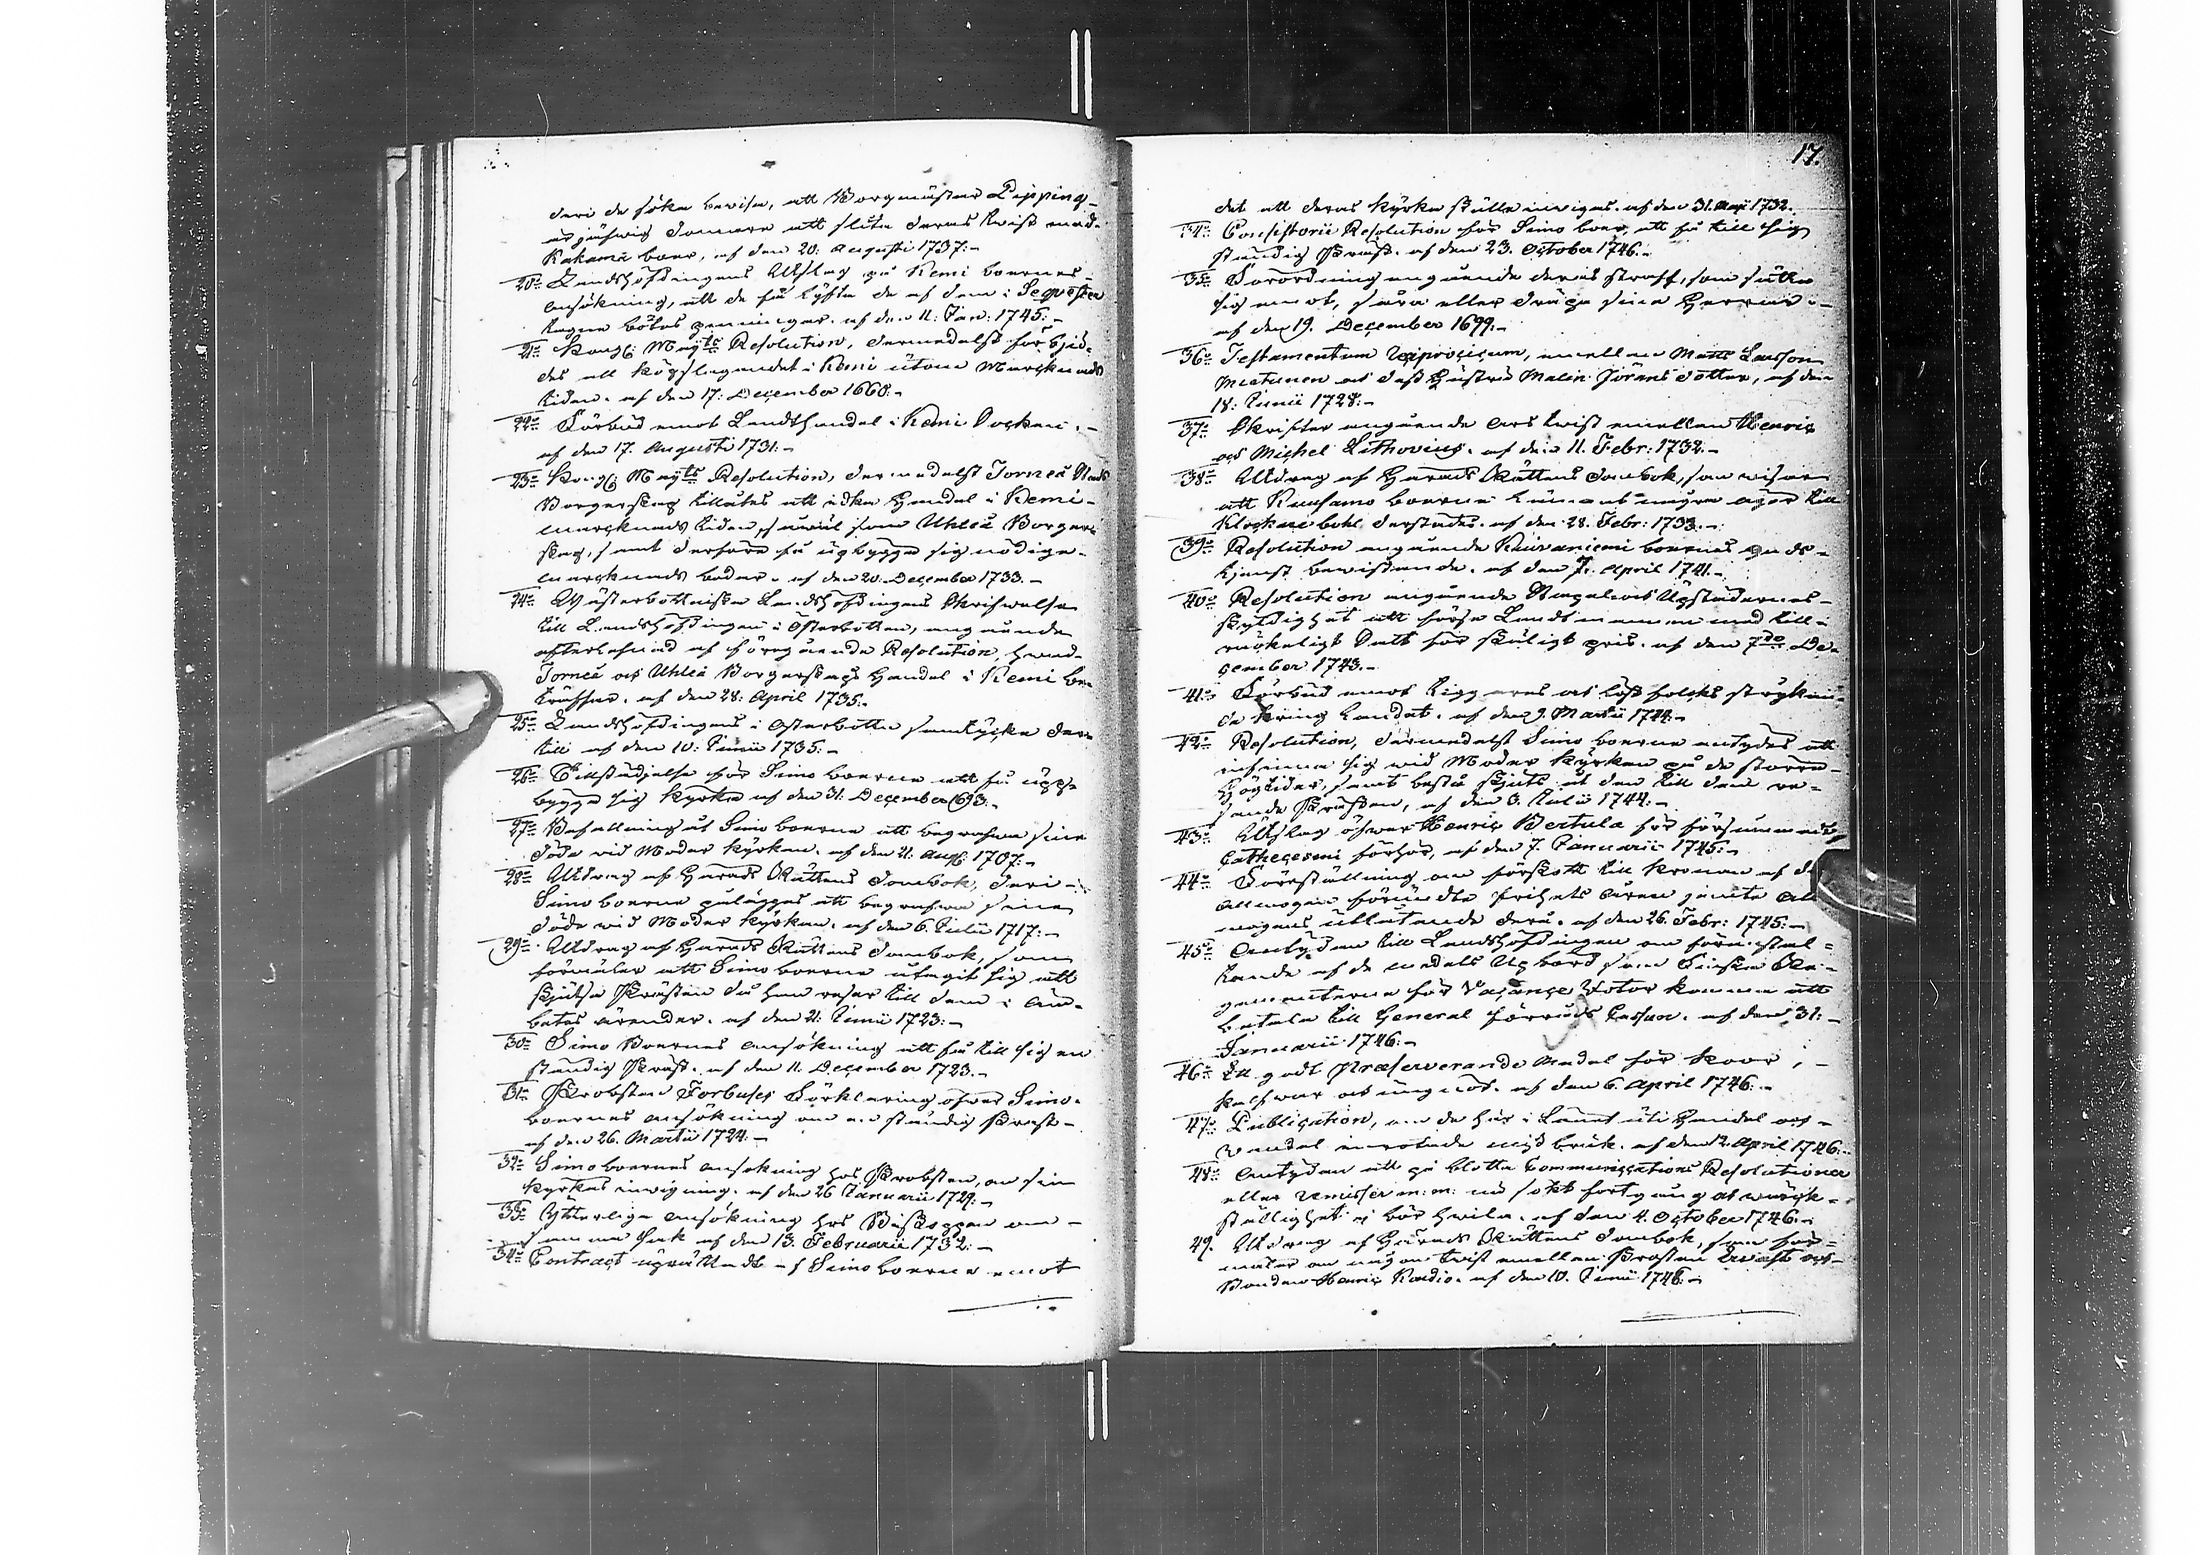 deri de söka bewisa, att Borgmästar Pipping
är jäfwig Domare att sluta deras twist med
Kakama boer, af den 20. Augusti 1737.-
20:o Landshöfdingens Utslag på Kemi boernes
ansökning, att de få lyfta de af dem i Sequester
tagne böters penningar. af den 11: Jan: 1745.-
21:o Kongl: Maij:ts Resolution, dermedelst förbjud-
des all köpslagandet i Kemi utom Marcknads
tiden. af den 17: December 1668.-
22:o Förbud emot Landthandel i Kemi Socken.-
af den 17. Augusti 1731.-
23:o Kongl: Maij:ts Resolution, dermedelst Torneå Stads
Borgerskap tillåtes att idka Handel i Kemi-
marcknads tiden, såwäl som Uhleå Borger-
skap, samt derföre få upbygga sig nödige-
marcknads bodar. af den 20. December 1733.-
24:o Wästerbottniske Landshöfdingens Skrifwelse
till Landshöfdingen i Österbotten, angående
efterlefnad af föregående Resolution, hwad-
Torneå och Uhleå Borgerskaps Handel i Kemi be-
träffar. af den 28. April 1735.-
25:o Landshöfdingens i Österbotten samtycke der-
till af den 10: Junii 1735.-
26:o Tillstädjelse för Simo boerne att få upp-
bygga sig Kyrka af den 31. December 1693.-
27:o Befallning åt Simo boerne att begrafwa sine
döde wid Moder Kyrkan. af den 21. Aug: 1707.-
28:o Utdrag af Härads Rättens Dombok, deri-
Simo boerne pålägges att begrafwa sine
döde wid Moder Kyrkan. af den 6. Julii 1717.-
29:o Utdrag af Härads Rättens Dombok, som
förmäler att Simo boerne utagit sig att
skjutsa Prästen då han reser till dem i Äm-
betes ärender. af den 21. Junii 1723.-
30:o Simo Boernes ansökning att få till sig en
ständig Präst. af den 11. December 1723.-
31:o Probsten Forbuses Förklaring öfwer Simo-
boernes ansökning om en ständig Präst-
af den 26. Martii 1724.-
32:o Simo boernes ansökning hos Probsten, om sin
Kyrkas inwigning. af den 26 Januarii 1729.-
33:o Ytterlige ansökning hos Biskoppen om-
samma sak af den 13. Februarii 1732.-
34:o Contract uprättadt af Simo boerne emot
17.
det att deras Kyrka skulle inwigas. af den 31. Maji 1732.
34:o Consistorii Resolution för Simo boer, att få till sig
ständig Präst. af den 23. October 1746.-
35:o Förordning angående deras straff, som sätta
sig emot, såra eller dräpa sina Herrar.-
af den 19. December 1699.-
36:o Testamentum reciprocum, emellan Matts Larsson
Miettunen och dess Hustru Malin Jörans dotter, af den
18: Junii 1728.-
37:o Skrifter angående arf twist emellan Henric
och Michel Lithovius. af den 11. Febr: 1732.-
38:o Utdrag af Härads Rättens Dombok, som wisar
att Kuusamo boerne lämnat någre ägor till
Klockare bohl derstädes. af den 28. Febr: 1733.-
39:o Resolution angående Kiuvaniemi boernes Guds-
tjenst bewistande. af den 7. April 1741.-
40:o Resolution angående Stapel och Upstädernes-
skyldighet att förse Landtmannen med till-
räckeligt Salt för skäligt pris. af den 7:de De-
cember 1743.-
41:o Förbud emot Tiggares och löst folcks strykan-
de kring Landet. af den 9. Martii 1744.-
42:o Resolution, dermedelst Simo boerne antydes att
infinna sig wid Moder Kyrkan på de större-
Högtider, samt bestå skjuts åt den till dem re-
sande Prästen, af den 3. Julii 1744.-
43:o Utslag öfwer Henric Bertula för försummadt
Cathecesmi förhör, af den 7. Januarii 1745.-
44:o Föreställning om förskott till Kronan af
Allmogen förundte frihets åren jemte All
mogens utlåtande deru. af den 26. Febr: 1745.-
45:o Antydan till Landshöfdingen om förmestal-
lande af de medels Upbörd som Finska Re-
gementerne för Vacance Rotor komma att
betala till General förråds Cassan. af den 31:-
Januarii 1746.-
46:o Ett godt Præserverande Medel för Koor,-
Kalfwar och ungnöt. af den 6 April 1746.-
47:o Publication, om de här i Länet uti Handel och-
Wandel inrotade missbruk. af den 2. April 1746.-
48:o Antydan att på blotta Communications Resolutioner
eller Remisser m: m: nu sökt fortgång och wärck-
ställighet ej bör hwila. af den 4. October 1746.-
49. Utdrag af Härads Rättens Dombok, som för-
mäler om någon twist emellan Prosten Qvist och-
Bonden Henric Kordio. af den 10. Junii 1748.-